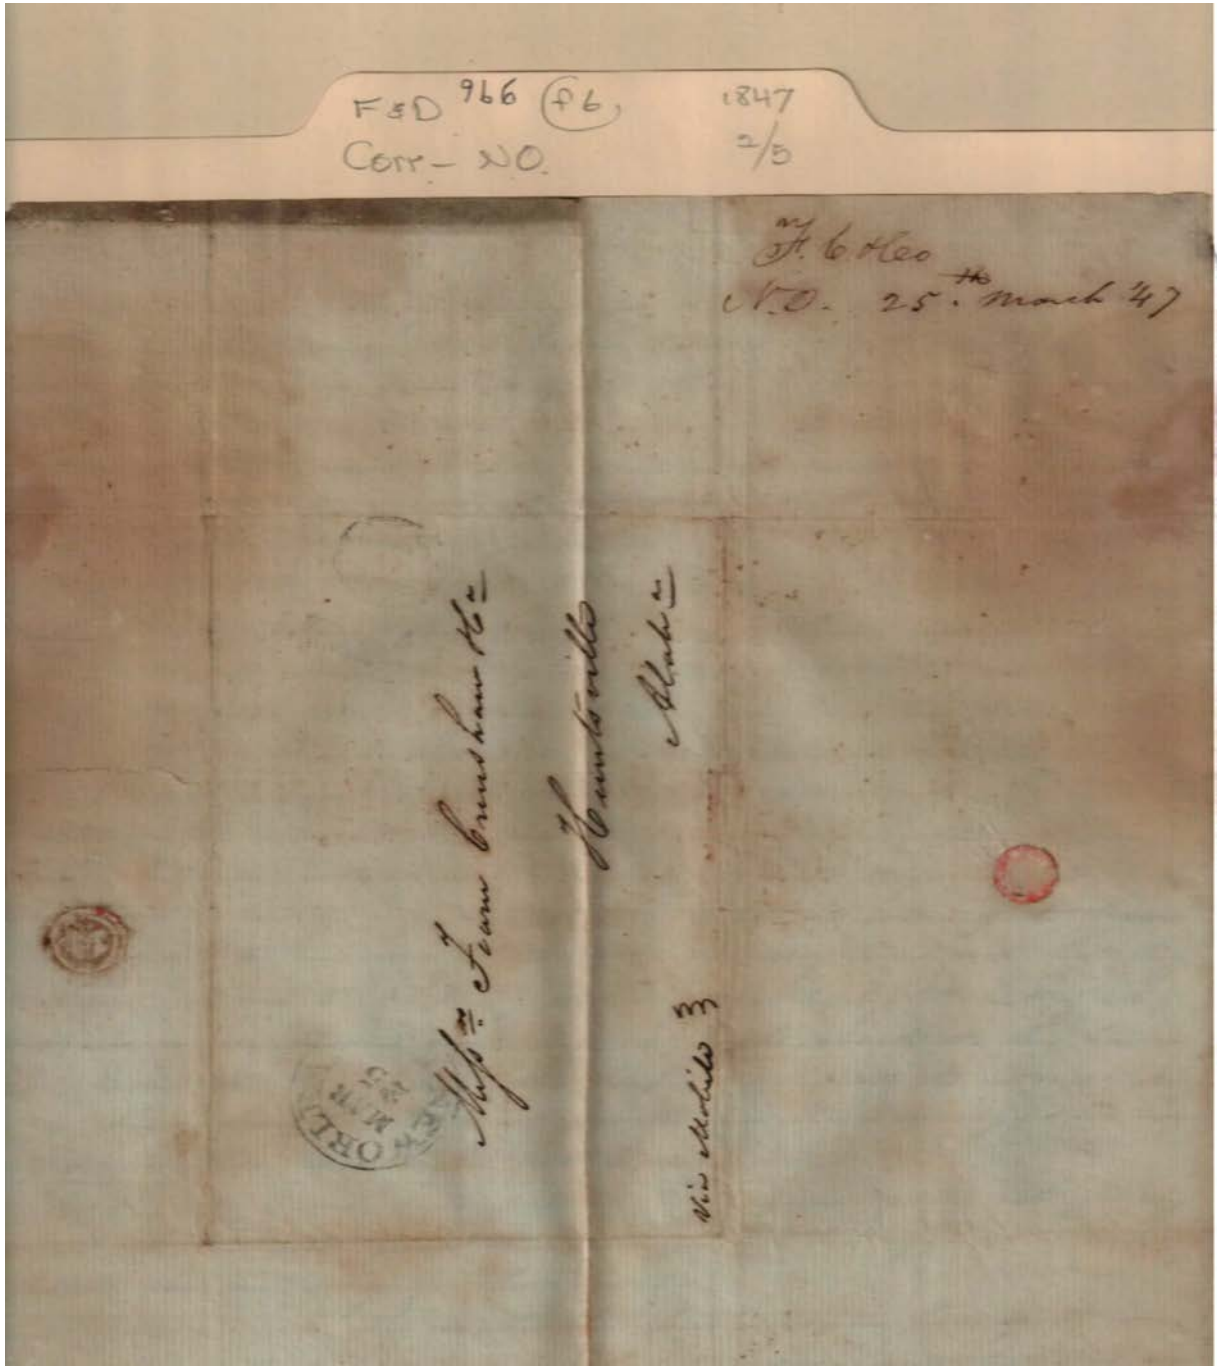 F&D 966 f6 1847
Corr- NO. 2/5
F. C & Co
N.O. 25th March '47
Mess rs Fearn Crenshaw & Co
Huntsville
Alaba
Via Mobile
NEW ORL
MAR
25